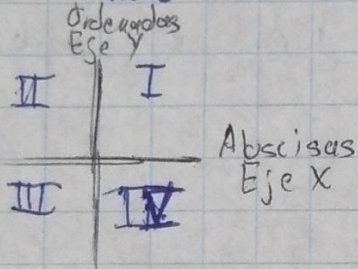 Ordenadas
Eje Y
II
I
Abscisas
Eje X
III
IV